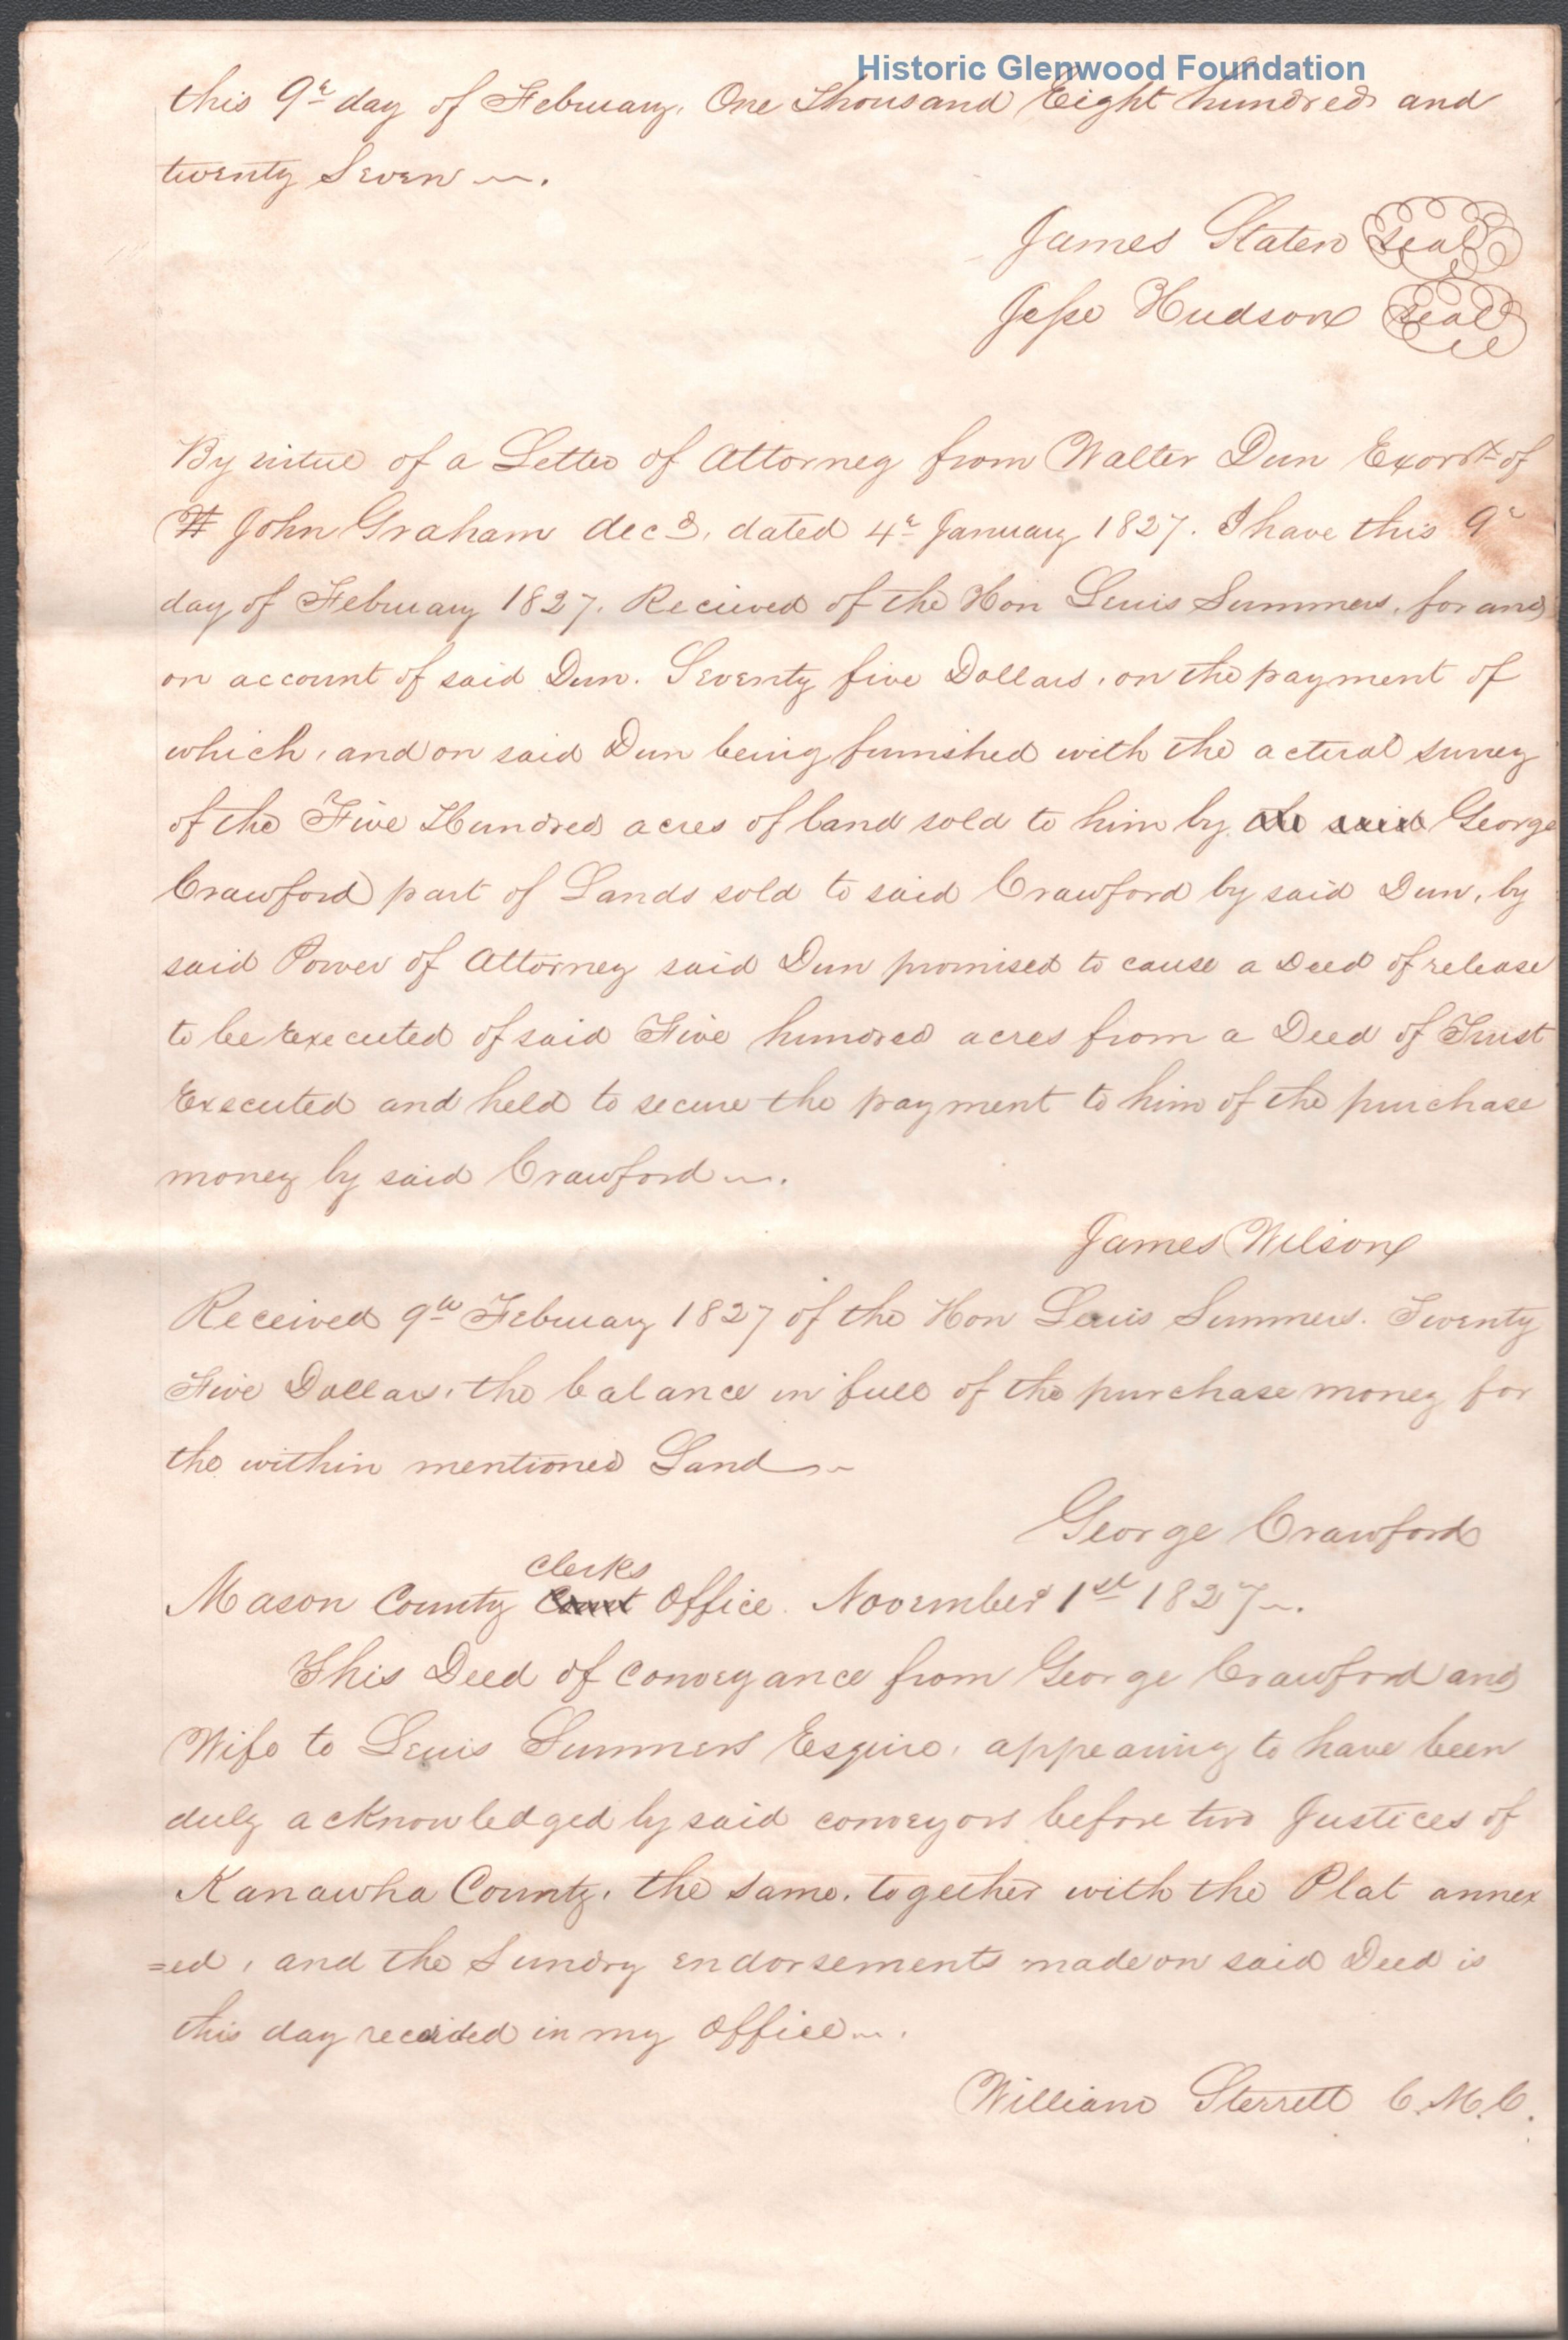 Historic Glenwood Foundation
this 9th day of February, One Thousand Eight hundred and
twenty Seven ~.
James Staten Seal
Jesse Hudson Seal
By virtue of a Letter of Attorney from Walter Dun Exor of
John Graham decd, dated 4th January 1827. I have this 9th
day of February 1827. Recieved of the Hon Lewis Summers, for and
on account of said Dun. Seventy five Dollars, on the payment of
which, and on said Dun being furnished with the actual survey
of the Five Hundred acres of land sold to him by the said George
Crawford part of Lands sold to said Crawford by said Dun, by
said Power of Attorney said Dun promised to cause a Deed of release
to be Executed of said Five hundred acres from a Deed of Trust
Executed and held to secure the payment to him of the purchase
money by said Crawford ~.
James Wilson
Received 9th February 1827 of the Hon Lewis Summers. Twenty
Five Dollars, the balance in full of the purchase money for
the within mentioned Land ~
George Crawford
clerks
Mason County Court Office. November 1st 1827 ~.
This Deed of Conveyance from George Crawford and
Wife to Lewis Summers Esquire, appearing to have been
duly acknowledged by said conveyors before two Justices of
Kanawha County, the same, together with the Plat annex
=ed, and the Sundry endorsements made on said Deed is
this day recorded in my office ~.
William Sterrett C.M.C.